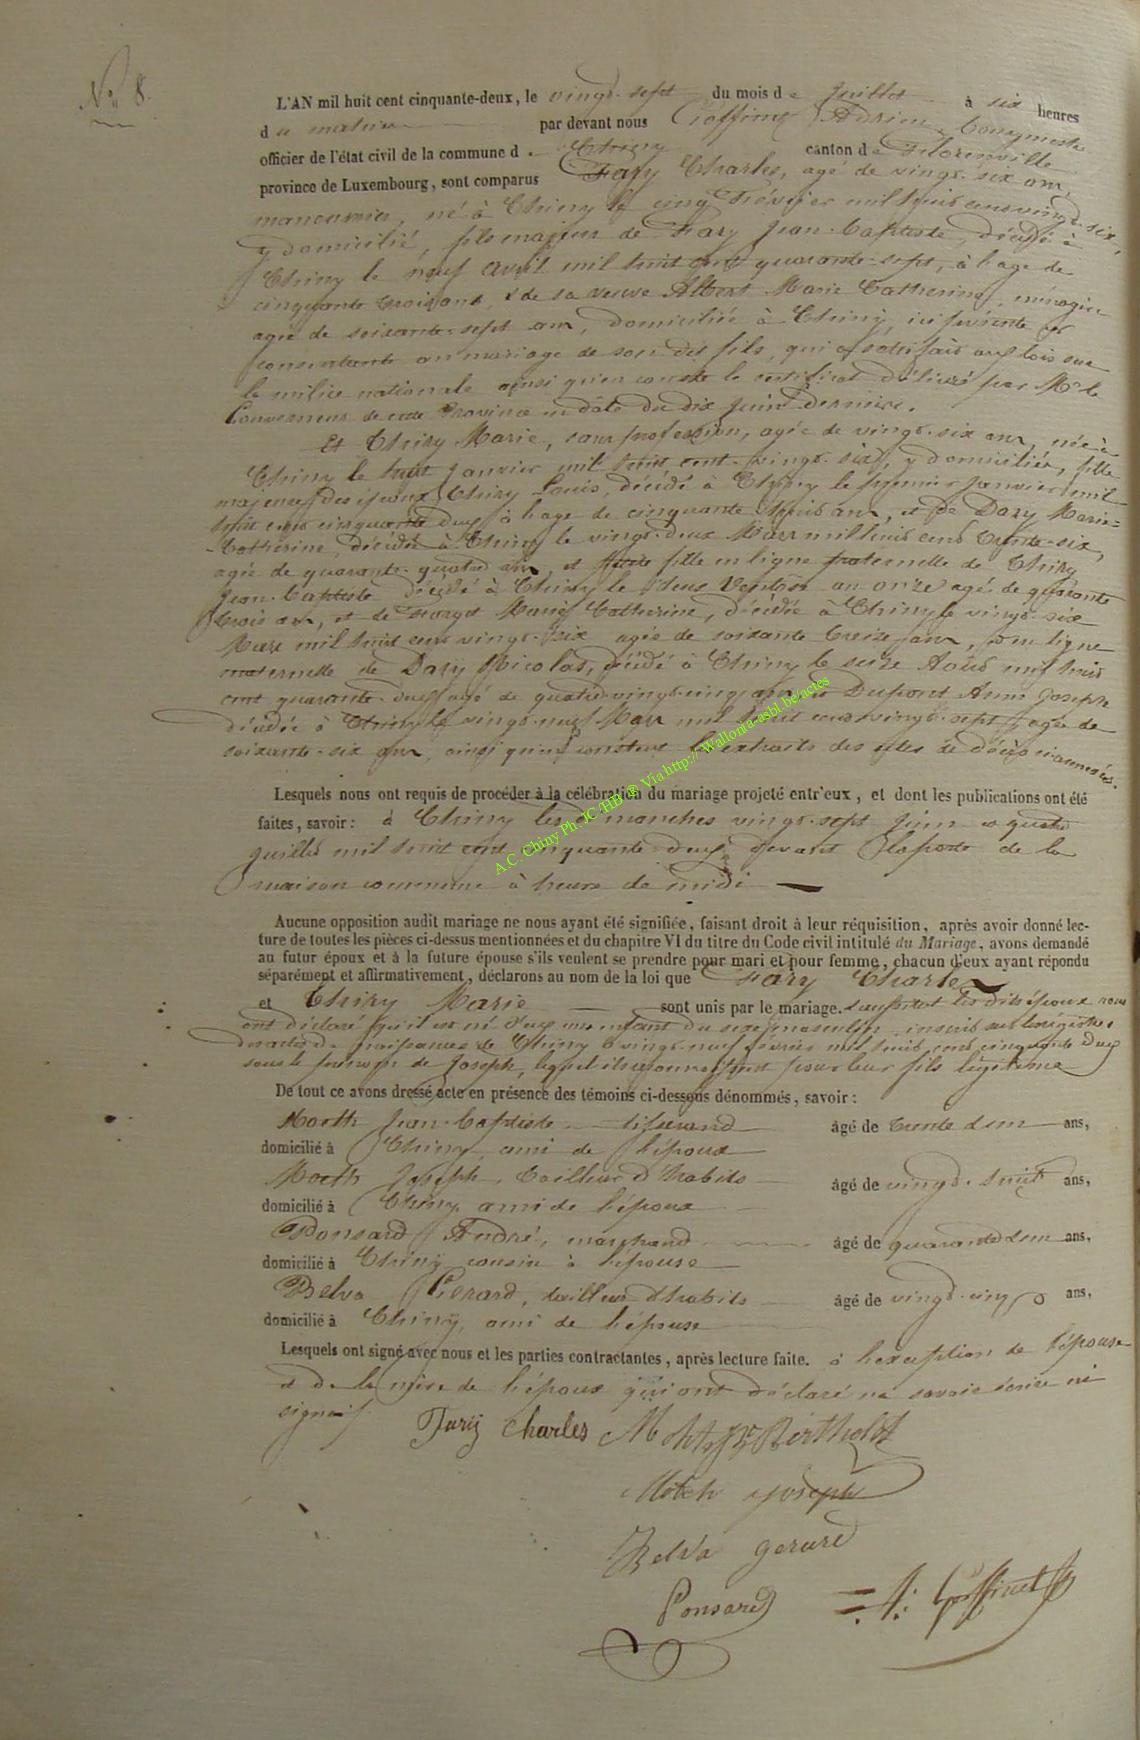 N° 8.
L'AN mil huit cent cinquante-deux, le vingt-sept du mois de juillet à six heures
du matin par devant nous Goffinet Adrien, bourgmestre
officier de l'état civil de la commune de Chiny canton de Florenville
province de Luxembourg, sont comparus Fary Charles, agé de vingt-six ans,
manoeuvrier, né à Chiny le cinq Février mil huit cent vingt-six,
y domicilié, fils majeur de Fary Jean-Baptiste, décédé à
Chiny le neuf avril mil huit cent quarante-sept, à l'age de
cinquante trois ans, & de sa veuve Albert Marie Catherine, ménagère
agée de soixante-sept ans, domiciliée à Chiny, ici présente et
consentante au mariage de son dit fils, qui a satisfait aux lois sur
la milice nationale ainsi qu'en conste le certificat délivré par Mr le
Gouverneur de cette Province en date du dix juin dernier.
Et Thiry Marie, sans profession, agée de vingt-six ans, née à
Chiny le huit janvier mil huit cent vingt-six, y domiciliée, fille
majeure des époux Thiry Louis, décédé à Chiny le premier janvier mil
huit cent cinquante deux à l'age de cinquante ans, et de Dazy Marie-
Catherine, décédée à Chiny le vingt-deux Mars mil huit cent trente-six,
agée de quarante-quatre ans, et petite fille en ligne paternelle de Thiry
Jean-Baptiste décédé à Chiny le deux Ventôse an onze agé de quarante
trois ans, et de Forget Marie Catherine, décédée à Chiny le vingt-six
Mars mil huit cent vingt-six agée de soixante treize ans, en ligne
maternelle de Dazy Nicolas, décédé à Chiny le seize Août mil huit
cent quarante-deux agé de quatre-vingt-cinq ans et Dupont Anne Joseph
décédée à Chiny le vingt-neuf Mars mil huit cent vingt-sept, agée de
soixante-six ans, ainsi qu'en constent les extraits des actes de décès ci-annexés.
Lesquels nous ont requis de procéder à la célébration du mariage projeté entr'eux, et dont les publications ont été
faites, savoir : à Chiny les dimanches vingt-sept juin et quatre
juillet mil huit cent cinquante-deux, devant la porte de la
maison commune à heure de midi
A.C. Chiny Ph. JC-HB ® Via http://Wallonia-asbl.be/actes
Aucune opposition audit mariage ne nous ayant été signifiée, faisant droit à leur réquisition, après avoir donné lec-
ture de toutes les pièces ci-dessus mentionnées et du chapitre VI du titre du Code civil intitulé du Mariage, avons demandé
au futur époux et à la future épouse s'ils veulent se prendre pour mari et pour femme, chacun d'eux ayant répondu
séparément et affirmativement, déclarons au nom de la loi que Fary Charles
et Thiry Marie sont unis par le mariage. les dits époux nous
ont déclaré qu'il est né d'eux un enfant du sexe masculin, inscrit sur les régistres
des actes de naissances de Chiny le vingt-neuf février mil huit cent cinquante deux
sous le prénom de Joseph, lequel ils reconnaissent pour leur fils légitime
De tout ce avons dressé acte en présence des témoins ci-dessous dénommés, savoir :
Jean-Baptiste tisserand âgé de trente ans,
domicilié à Chiny ami de l'époux
Joseph, tailleur d'habits âgé de vingt-huit ans,
domicilié à Chiny ami de l'époux
Ponsard André, marchand âgé de quarante ans,
domicilié à Chiny cousin à l'épouse
Belva Gérard, tailleur d'habits âgé de vingt-cinq ans,
domicilié à Chiny, ami de l'épouse
Lesquels ont signé avec nous et les parties contractantes, après lecture faite. à l'exception de l'épouse
et de la mère de l'époux qui ont déclaré ne savoir écrire ni
signer
Fary Charles
Joseph
Belva Gerard
Ponsard A. Goffinet